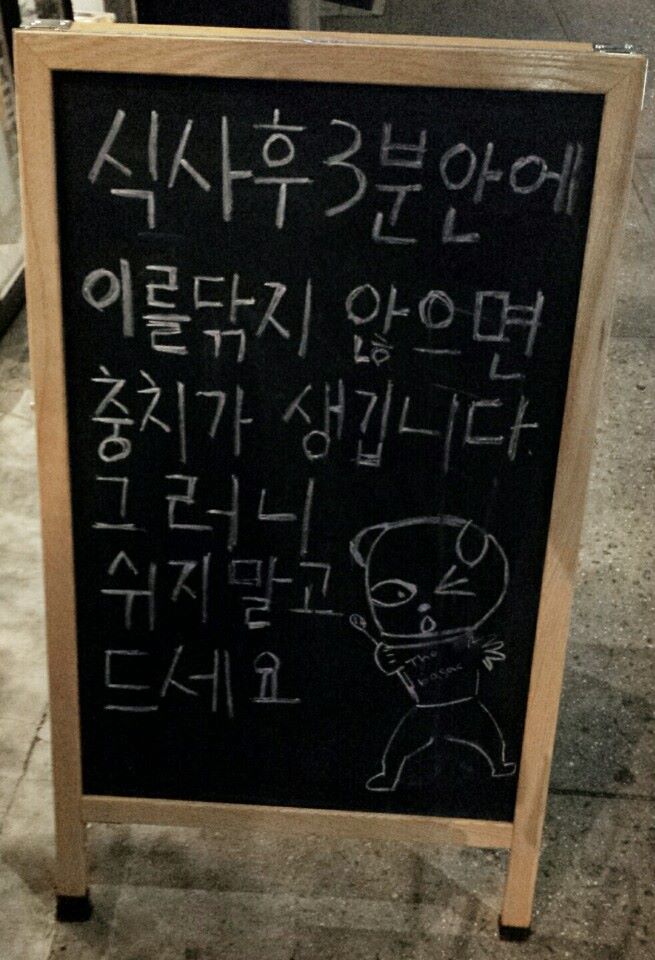 식사후 3분안에
이를닦지 않으면
충치가 생깁니다.
그러니
쉬지말고
드세요
The